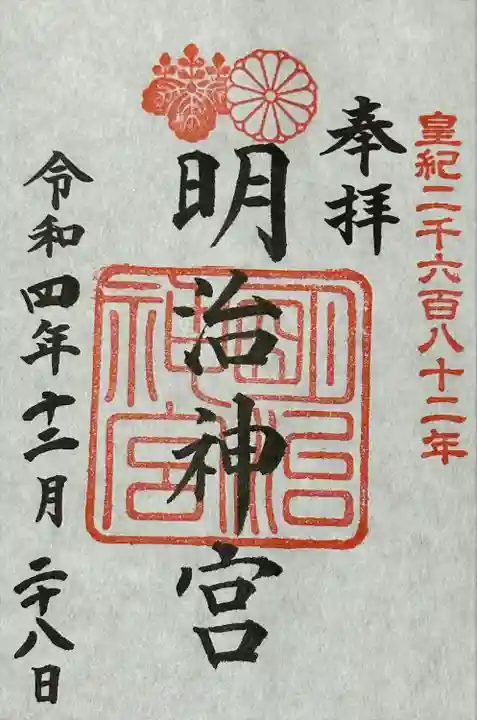 皇紀二千六百八十二年
奉拝
明治神宮
明治神宮
令和四年十二月二十八日